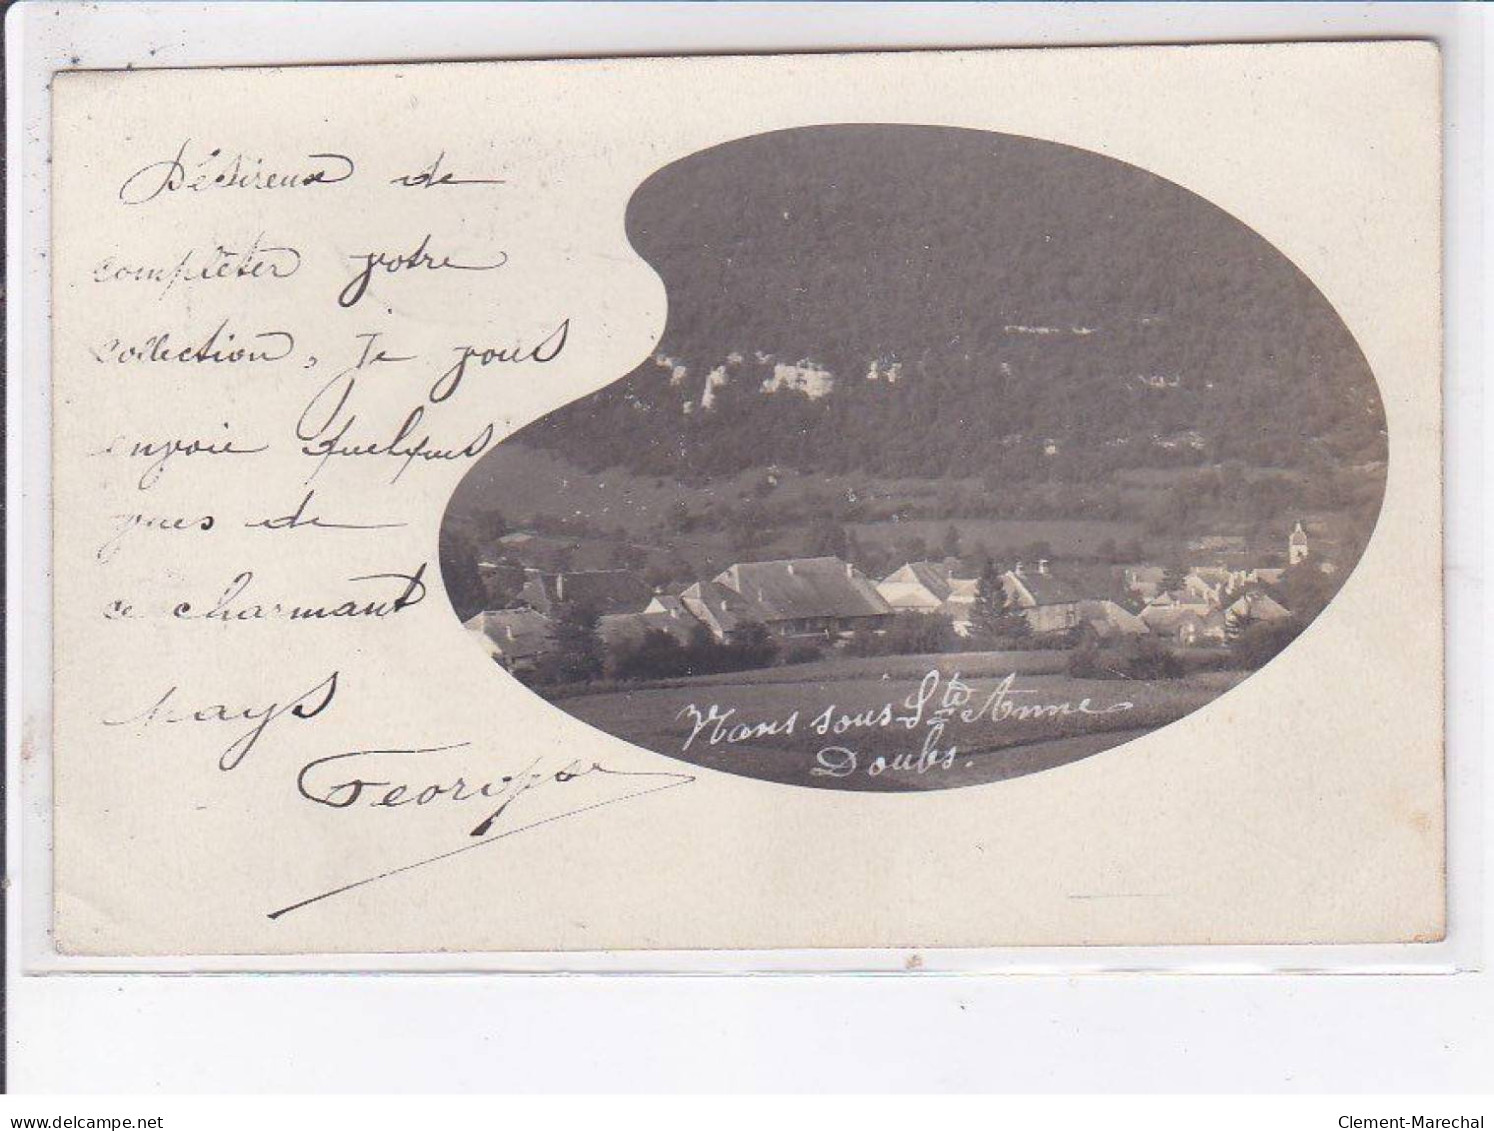 Désireux de
compléter votre
collection, Je vous
envoie quelques
vues de
ce charmant
pays
Georges
Nans sous Ste Anne
Doubs.
www.delcampe.net
Clement-Marechal